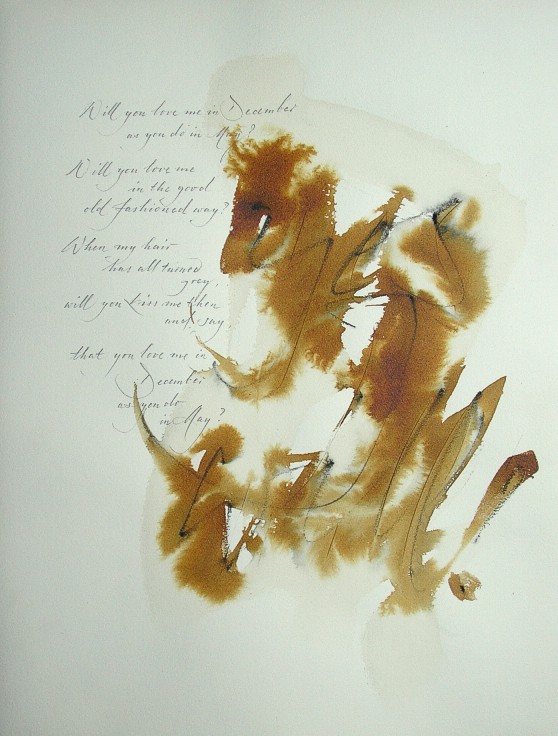 Will you love me in December
as you do in May?
Will you love me
in the good
old fashioned way?
When my hair
has all turned
grey,
will you kiss me then
and say
that you love me in
December
as you do
in May?